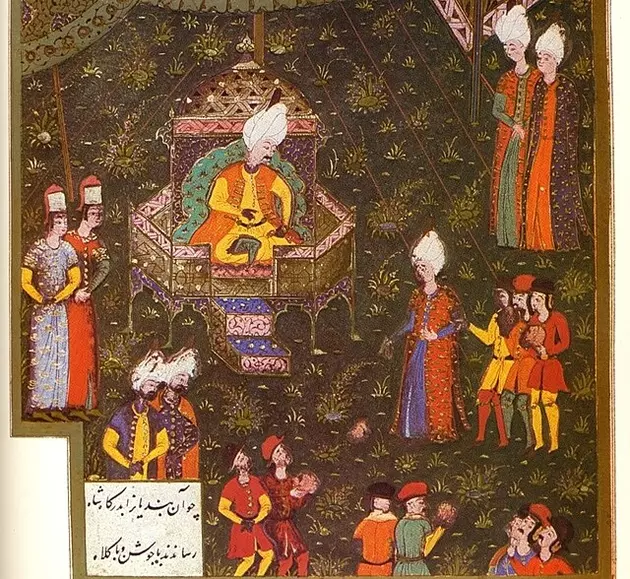 چو آن بندیانرا بدرکاه شاه
رساندند با جوشن و با کلاه